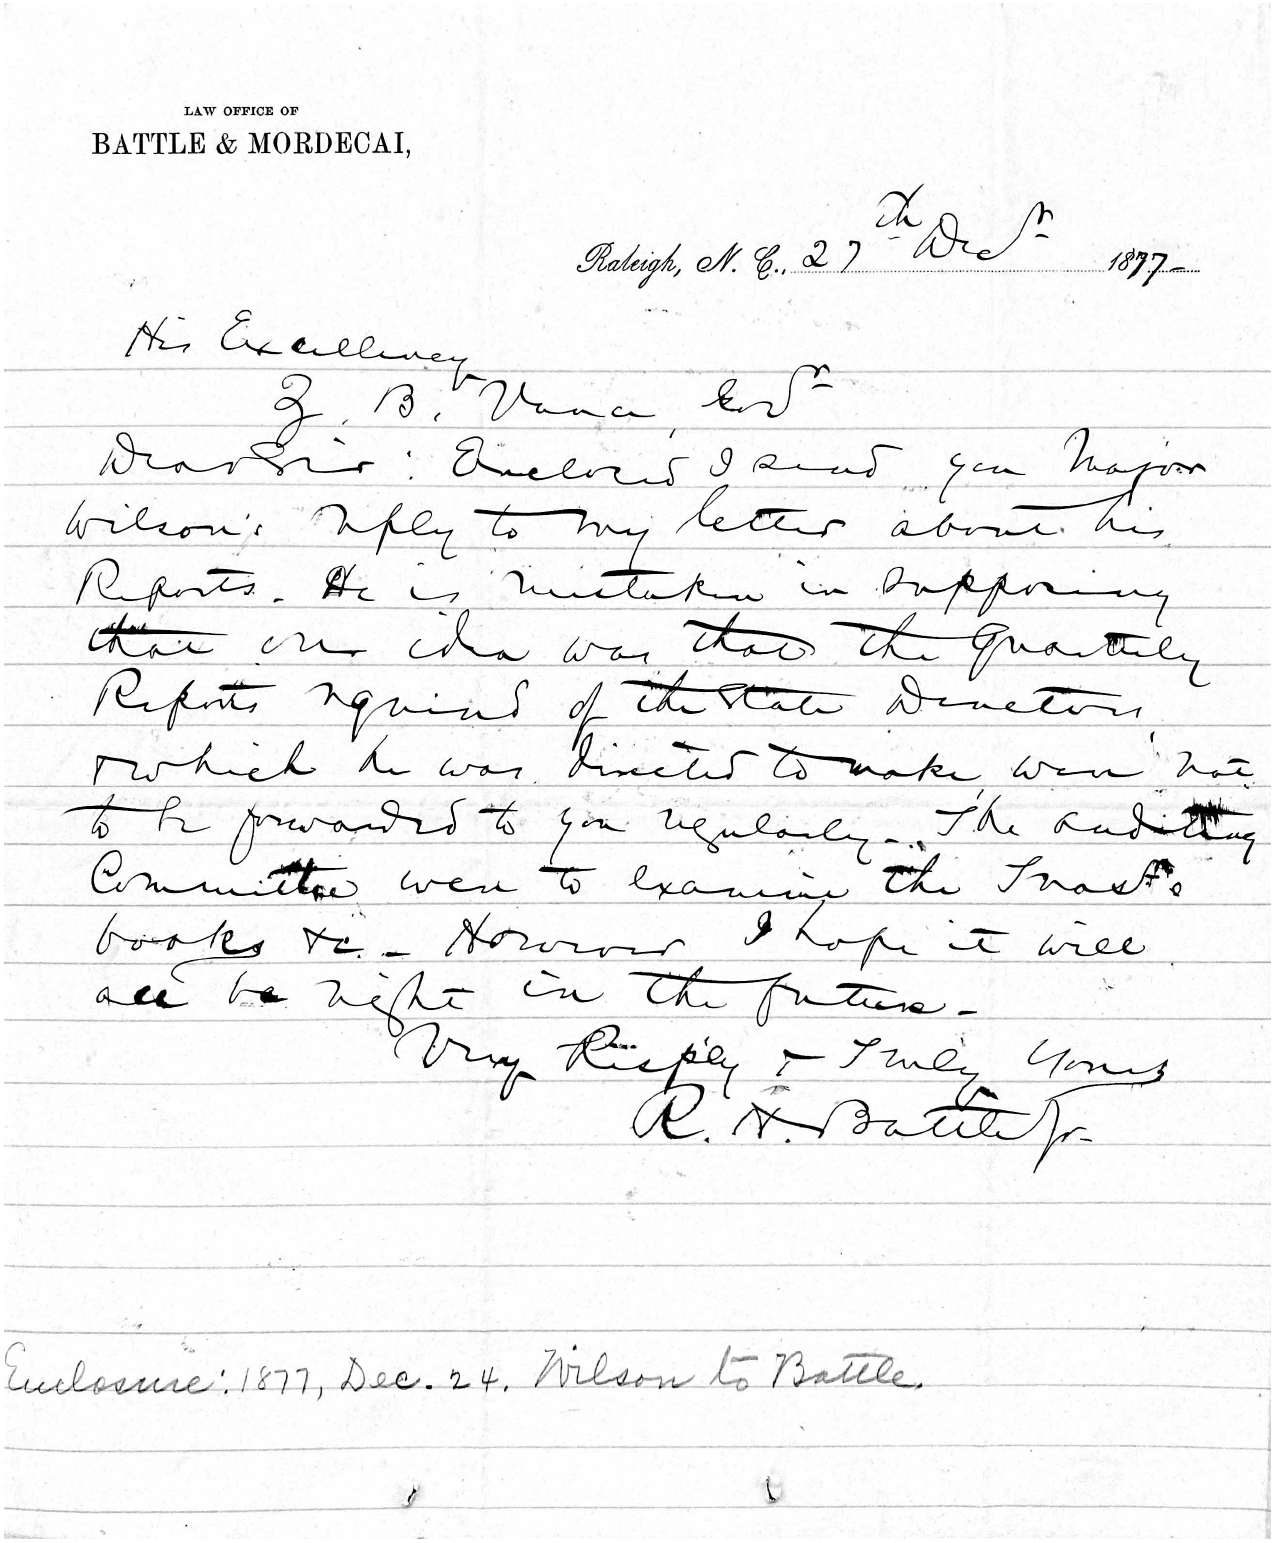 LAW OFFICE OF
BATTLE & MORDECAI,
Raleigh, N. C., 27th Decr 1877-
His Excellency
Z. B. Vance, Govr
Dear Sir: Enclosed I send you Major
Wilson's reply to my letter about his
Reports. He is mistaken in supposing
that our idea was that the Quarterly
Reports required of the State Directors
& which he was directed to make, were not
to be forwarded to you regularly. The auditing
Committee were to examine the Treas's
books &c. - However I hope it will
all be right in the future -
Very Resply & Truly Yours
R. H. Battle Jr
Enclosure: 1877, Dec. 24. Wilson to Battle.